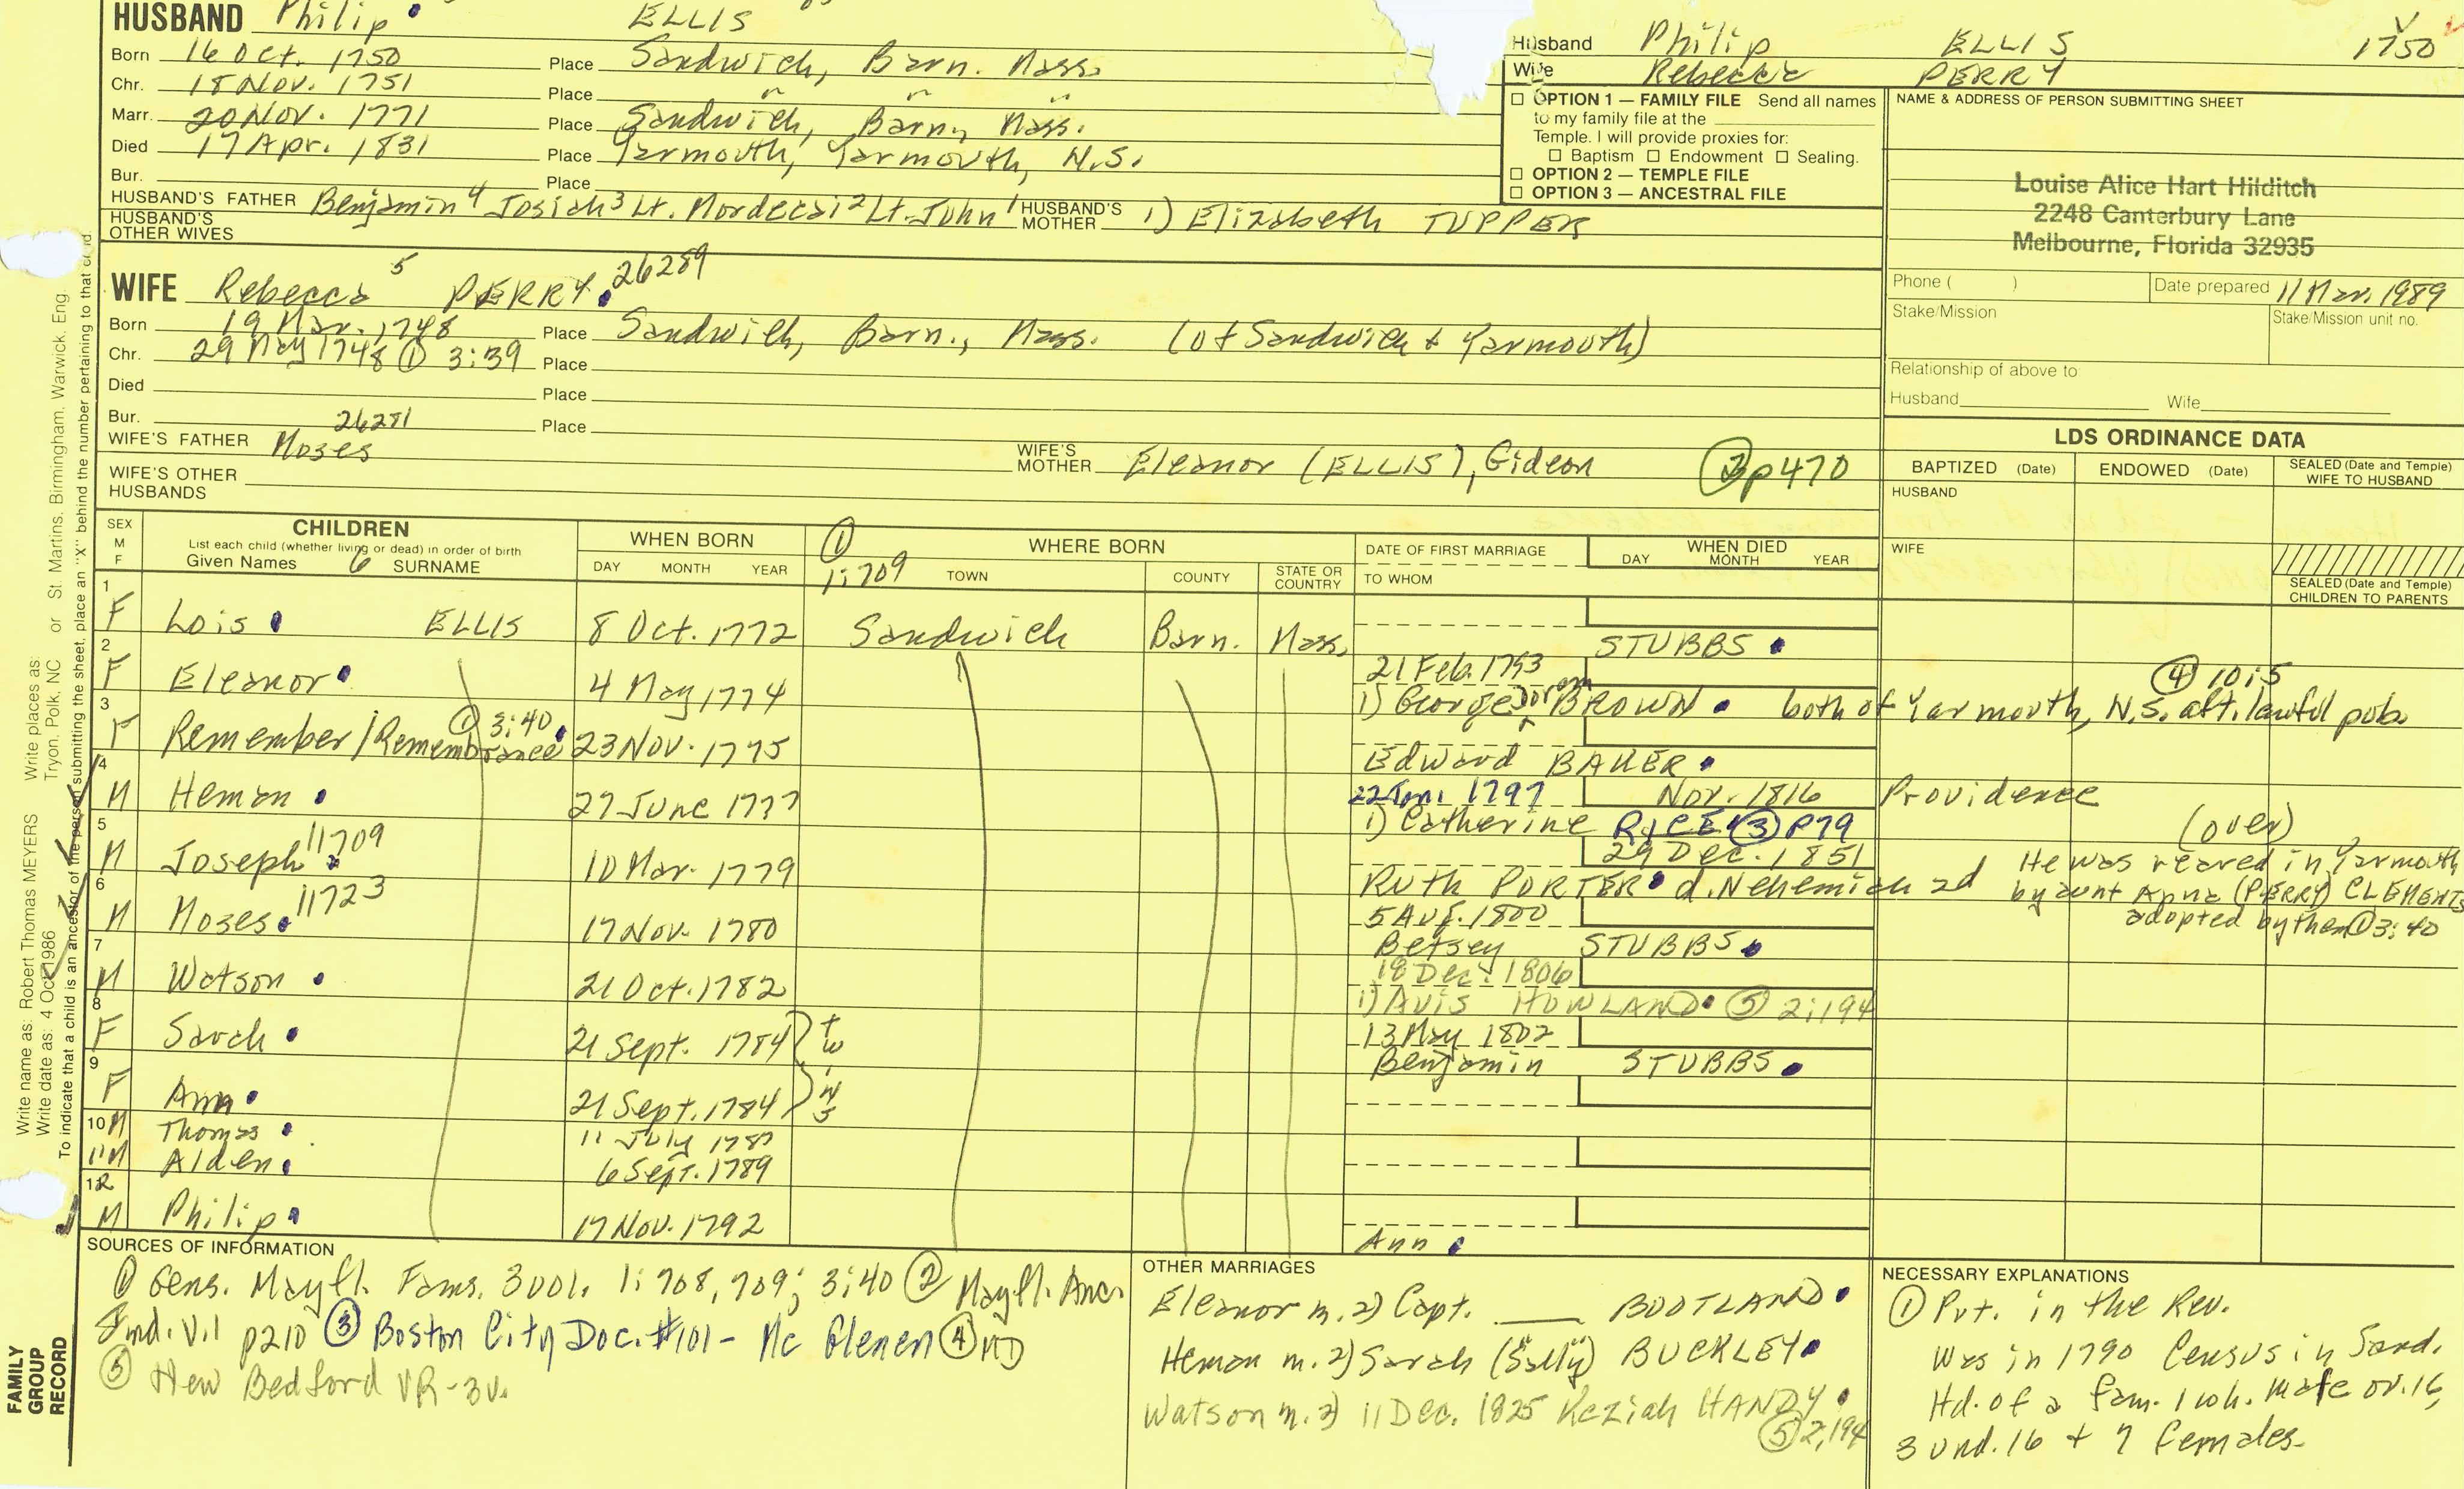 HUSBAND Philip ELLIS
Born 16 Oct. 1750 Place Sandwich, Barn. Mass.
Chr. 18 Nov. 1751 Place " " "
Marr. 20 Nov. 1771 Place Sandwich, Barn., Mass.
Died 17 Apr. 1831 Place Yarmouth, Yarmouth, N.S.
Bur. Place
HUSBAND'S FATHER Benjamin 4 Josiah 3 Lt. Mordecai 2 Lt. John 1 HUSBAND'S MOTHER 1) Elizabeth TUPPER
HUSBAND'S OTHER WIVES
Husband Philip ELLIS 1750
Wife Rebecca PERRY
☐ OPTION 1 — FAMILY FILE Send all names
to my family file at the
Temple. I will provide proxies for:
☐ Baptism ☐ Endowment ☐ Sealing.
☐ OPTION 2 — TEMPLE FILE
☐ OPTION 3 — ANCESTRAL FILE
NAME & ADDRESS OF PERSON SUBMITTING SHEET
Louise Alice Hart Hilditch
2248 Canterbury Lane
Melbourne, Florida 32935
Phone ( ) Date prepared 11 Mar. 1989
Stake/Mission Stake/Mission unit no.
Relationship of above to
Husband Wife
WIFE Rebecca 5 PERRY 26289
Born 19 Mar. 1748 Place Sandwich, Barn., Mass. (of Sandwich & Yarmouth)
Chr. 29 May 1748 ① 3:39 Place
Died Place
Bur. Place
26281
WIFE'S FATHER Moses WIFE'S MOTHER Eleanor (ELLIS), Gideon ② p470
WIFE'S OTHER HUSBANDS
LDS ORDINANCE DATA
BAPTIZED (Date) ENDOWED (Date) SEALED (Date and Temple) WIFE TO HUSBAND
HUSBAND
WIFE
SEALED (Date and Temple) CHILDREN TO PARENTS
SEX M F
CHILDREN
List each child (whether living or dead) in order of birth
Given Names 6 SURNAME
WHEN BORN
DAY MONTH YEAR
① 1:709
WHERE BORN
TOWN COUNTY STATE OR COUNTRY
DATE OF FIRST MARRIAGE
TO WHOM
WHEN DIED
DAY MONTH YEAR
1 F Lois ELLIS 8 Oct. 1772 Sandwich Barn. Mass. STUBBS
2 F Eleanor 4 May 1774 21 Feb. 1793
1) George BROWN both of Yarmouth, N.S. aft. lawful pub. ④ 10:5
3 F Remember/Remembrance ① 3:40 23 Nov. 1775 Edward BAKER
4 M Heman 27 June 1777 22 Jan. 1797 Nov. 1816 Providence
1) Catherine RICE ③ p79 (over)
5 M Joseph 11709 10 Mar. 1779 29 Dec. 1851
Ruth PORTER d. Nehemiah 2d
He was reared in Yarmouth
by aunt Anna (PERRY) CLEMENTS
adopted by them ① 3:40
6 M Moses 11723 17 Nov. 1780 5 Aug. 1800
Betsey STUBBS
7 M Watson 21 Oct. 1782 18 Dec. 1806
1) Avis HOWLAND ⑤ 2:194
8 F Sarah 21 Sept. 1784 twins 13 May 1802
Benjamin STUBBS
9 F Ann 21 Sept. 1784
10 M Thomas 11 July 1787
11 M Alden 6 Sept. 1789
12 M Philip 17 Nov. 1792 Ann
SOURCES OF INFORMATION
① Gens. Mayfl. Fams. 3 vol. 1:708, 709; 3:40 ② Mayfl. Anc.
Ind. V.1 p210 ③ Boston City Doc. #101 - Mc Glenen ④ MD
⑤ New Bedford VR-3v.
OTHER MARRIAGES
Eleanor m. 2) Capt. ___ BOOTLAND
Heman m. 2) Sarah ("Sally") BUCKLEY
Watson m. 2) 11 Dec. 1825 Keziah HANDY
⑤ 2:194
NECESSARY EXPLANATIONS
① Pvt. in the Rev.
Was in 1790 Census in Sand.
Hd. of a fam. 1 wh. Male ov. 16,
3 und. 16 + 7 females.
Write name as: Robert Thomas MEYERS Write places as: Tryon, Polk, NC or St. Martins, Birmingham, Warwick, Eng.
Write date as: 4 Oct 1986
To indicate that a child is an ancestor of the person submitting the sheet, place an "X" behind the number pertaining to that child.
FAMILY
GROUP
RECORD